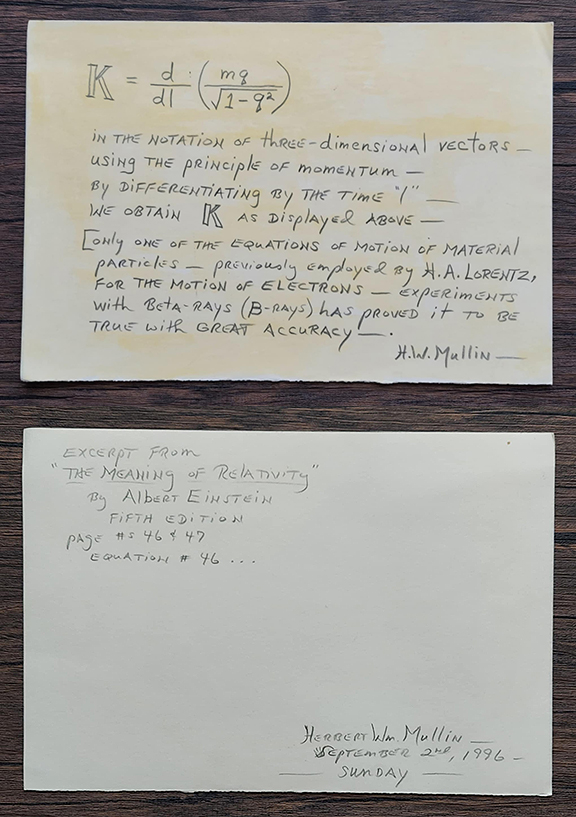 𝕂 = d/dl · (mq/√1-q²)
IN THE NOTATION OF three-dimensional vectors —
using THE principle of momentum —
By Differentiating By THE TIME "l" —
WE OBTAIN 𝕂 AS Displayed ABOVE —
[only ONE OF THE EQUATIONS OF MOTION OF MATERIAL
particles — previously employed by H.A. LORENTZ,
FOR THE MOTION OF ELECTRONS — EXPERIMENTS
with BETA-RAYS (β-RAYS) has PROVED IT TO BE
TRUE with GREAT ACCURACY —.
H.W. Mullin —
EXCERPT FROM
"THE MEANING OF RELATIVITY"
By ALBERT EINSTEIN
FIFTH EDITION
page #s 46 & 47
EQUATION # 46 ...
HERBERT Wm. Mullin —
SEPTEMBER 2nd, 1996 —
— SUNDAY —